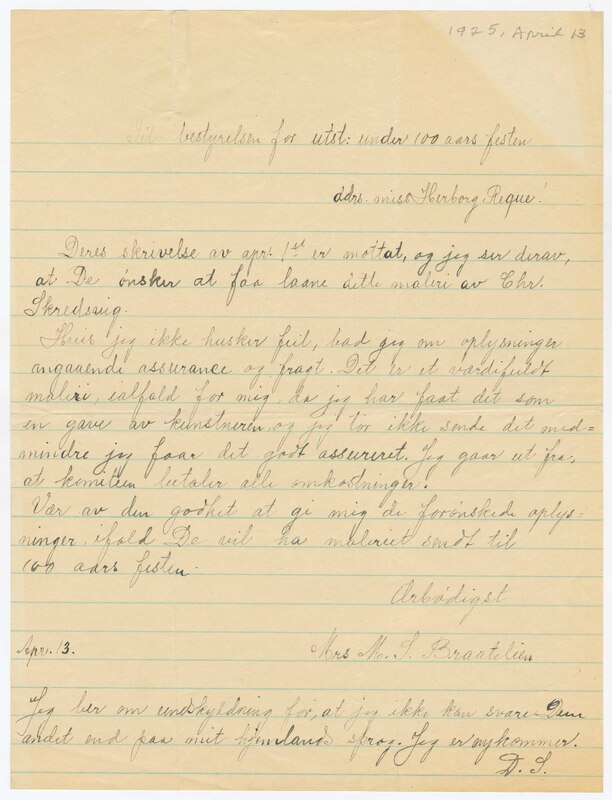 1925, April 13
Til bestyrelsen for utst: under 100 aars festen
adrs. miss Herborg Reque!
Deres skrivelse av apr. 1st er mottat, og jeg ser derav,
at De ønsker at faa laane dette maleri av Chr.
Skredsvig.
Hvis jeg ikke husker feil, bad jeg om oplysninger
angaaende assurance og fragt. Det er et værdifuldt
maleri, ialfald for mig, da jeg har faat det som
en gave av kunstneren, og jeg tør ikke sende det med=
mindre jeg faar det godt assureret. Jeg gaar ut fra,
at komiteen betaler alle omkostninger.
Vær av den godhet at gi mig de forønskede oplys-
ninger, ifald De vil ha maleriet sendt til
100 aars festen.
Ærbødigst
Apr. 13.
Mrs M. S. Braatelien
Jeg ber om undskyldning for, at jeg ikke kan svare Dem
andet end paa mit hjemlands sprog. Jeg er nykommer.
D. S.